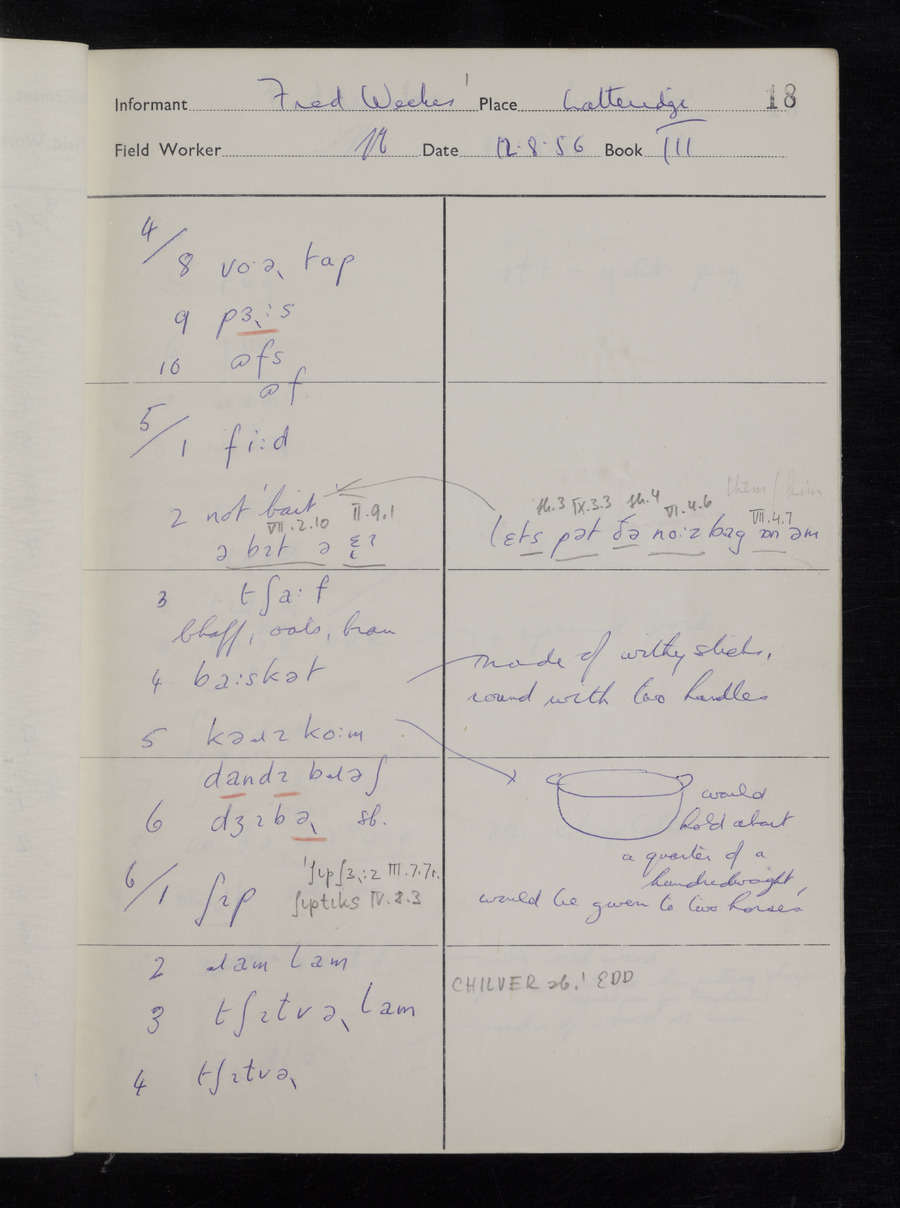 Informant Fred Weekes Place Latteridge 18
Field Worker Date 12.8.56 Book III
4/
8 vo·ə˞ tap
9 pɜ˞ːs
10 ɒfs
ɒf
5/
1 fiːd
2 not 'bait'
VII.2.10 II.9.1
ə bɪt ə
sh.3 IX.3.3 sh.4 VI.4.6 them/him VII.4.7
lɛts pət ðə noːz bag ɒn əm
3 tʃaːf
Chaff, oats, bran
4 baːskət
made of withy sticks,
round with two handles
5 kəɹɪ koːm
dandɪ bɹəʃ
6 dʒɪbə˞ sb.
would
hold about
a quarter of a
hundredweight,
would be given to two horses
6/
1 ʃɪp
ʃɪpʃɜ˞ːz III.7.7n.
ʃɪptɪks IV.8.3
2 ɹam lam
3 tʃɪtvə˞ lam
4 tʃɪtvə˞
CHILVER sb.¹ EDD